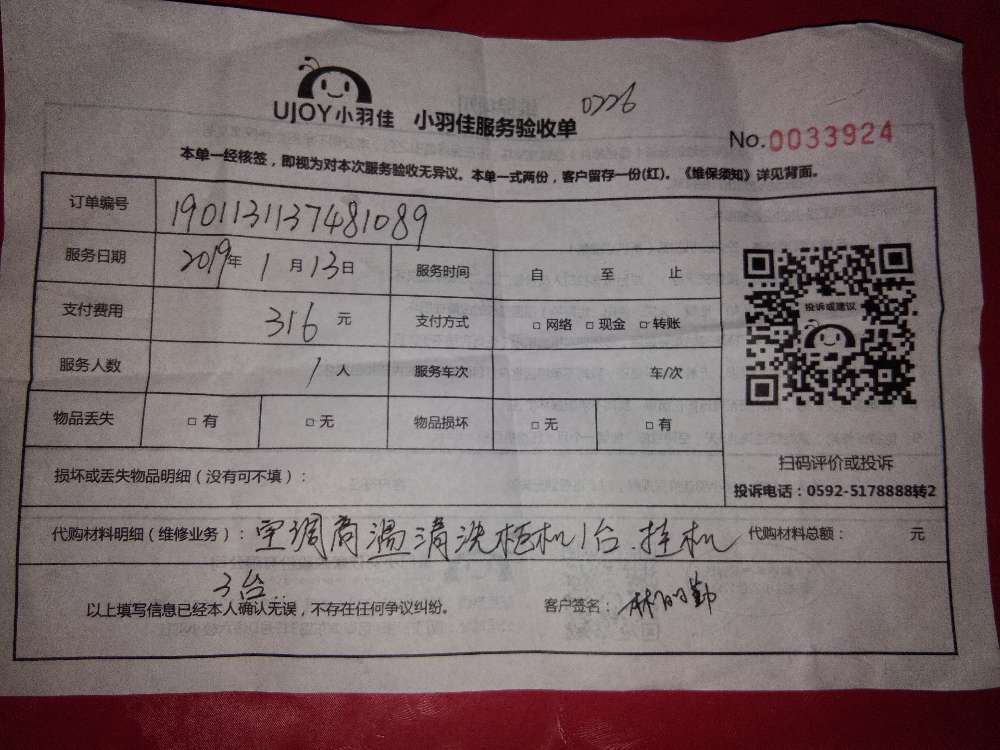 UJOY小羽佳 小羽佳服务验收单 0226
No.0033924
本单一经核签，即视为对本次服务验收无异议。本单一式两份，客户留存一份(红)。《维保须知》详见背面。
订单编号 1901131137481089
服务日期 2019年1月13日 服务时间 自 至 止
支付费用 316元 支付方式 □网络 □现金 □转账
服务人数 1人 服务车次 车/次
物品丢失 □有 □无 物品损坏 □无 □有
投诉或建议
扫码评价或投诉
投诉电话：0592-5178888转2
损坏或丢失物品明细（没有可不填）：
代购材料明细（维修业务）：空调高温清洗柜机1台.挂机 代购材料总额： 元
3台.
以上填写信息已经本人确认无误，不存在任何争议纠纷。 客户签名：林